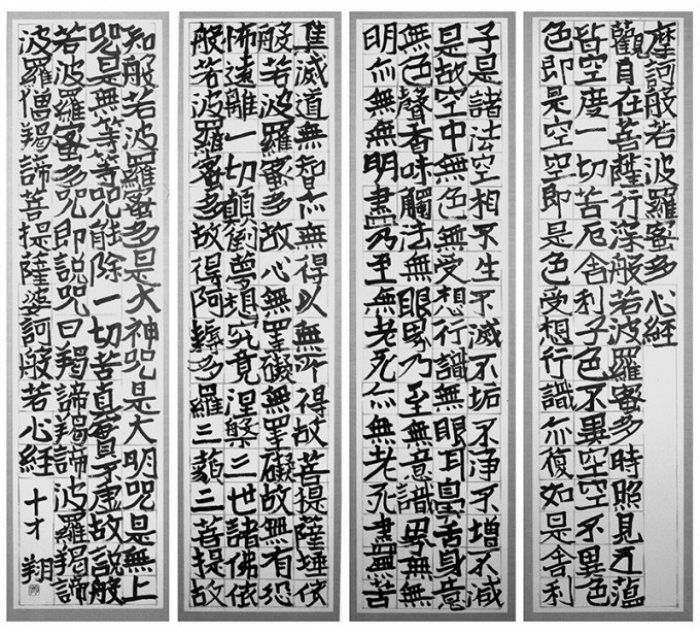 摩訶般若波羅蜜多心経
觀自在菩薩行深般若波羅蜜多時照見五蘊
皆空度一切苦厄舎利子色不異空空不異色
色即是空空即是色受想行識亦復如是舎利
子是諸法空相不生不滅不垢不浄不増不減
是故空中無色無受想行識無眼耳鼻舌身意
無色聲香味觸法無眼界乃至無意識界無無
明亦無無明盡乃至無老死亦無老死盡無苦
集滅道無智亦無得以無所得故菩提薩埵依
般若波羅蜜多故心無罣礙無罣礙故無有恐
怖遠離一切顛倒夢想究竟涅槃三世諸佛依
般若波羅蜜多故得阿耨多羅三藐三菩提故
知般若波羅蜜多是大神咒是大明咒是無上
咒是無等等咒能除一切苦真實不虚故説般
若波羅蜜多咒即説咒曰羯諦羯諦波羅羯諦
波羅僧羯諦菩提薩婆訶般若心経
十才 翔